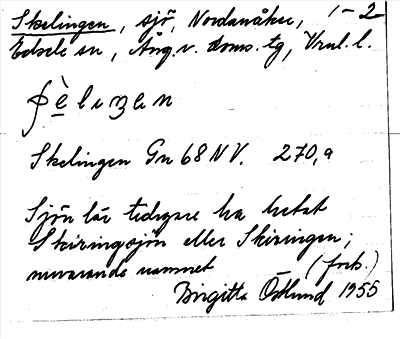 Skelingen, sjö, Nordanåker, 1-2
Edsele sn, Ång. v. doms. tg, Vnl. l.
Skelingen Gn 68 NV. 270,9
Sjön lär tidigare ha hetat
Skiringsjön eller Skiringen;
nuvarande namnet (forts.)
Birgitta Östlund 1955